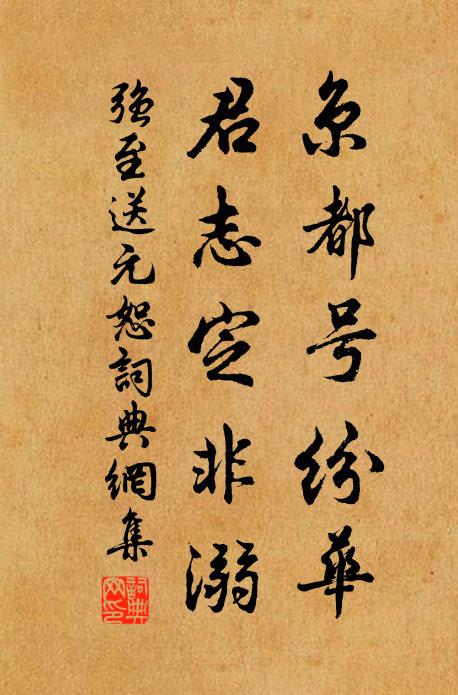 京都号纷華
君志定非溺
强至送元恕詞典網集
詞典網印